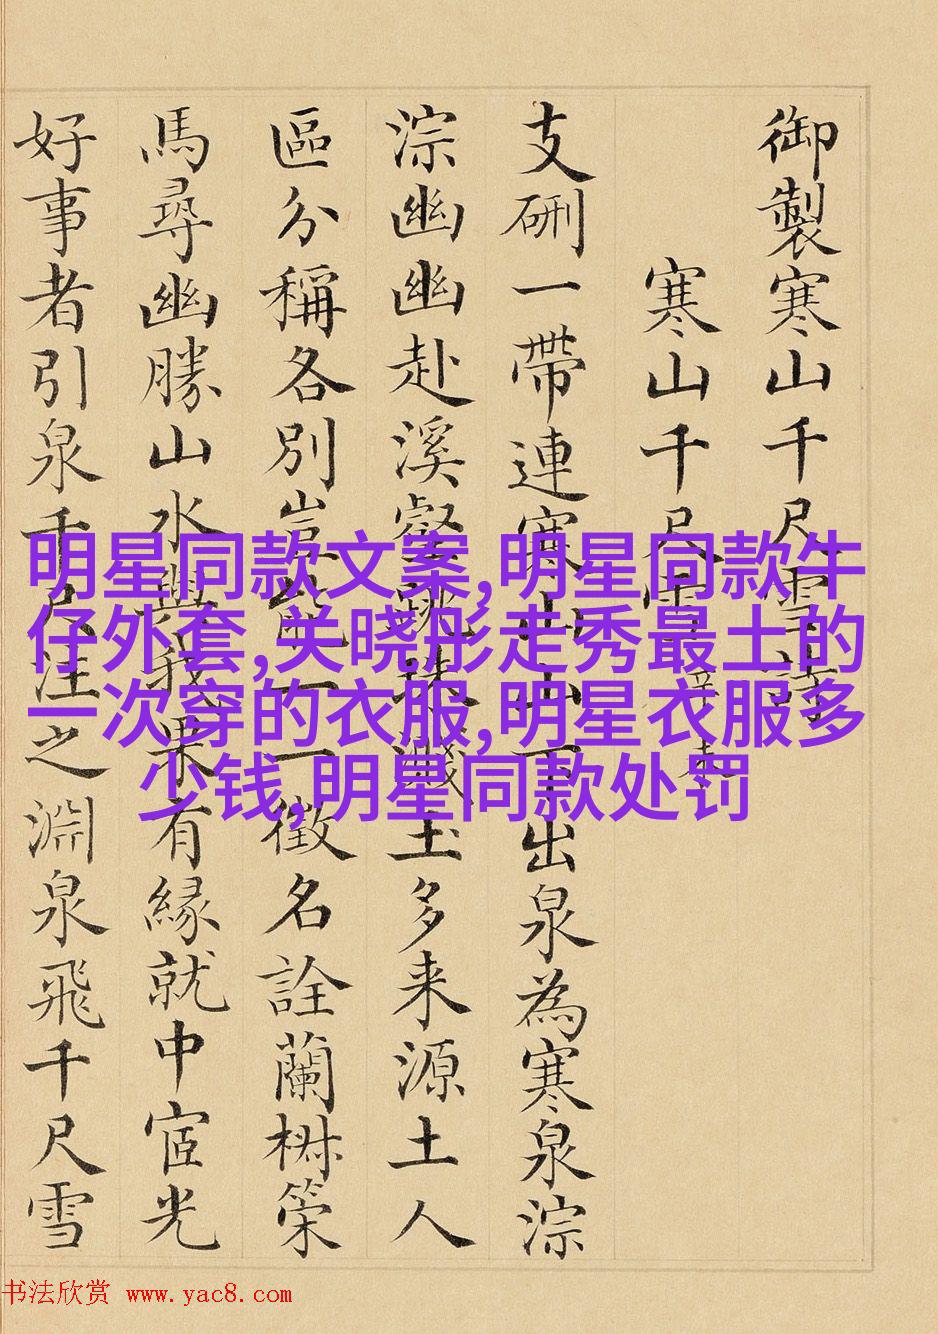 御製寒山千尺雪詩
寒山千尺雪 辛未
支硎一帶連寒山山下出泉為寒泉淙
淙幽幽赴溪壑跳珠濺玉多来源土人
區分稱各別豈能一一徵名詮蘭椒策
馬尋幽勝山水與我果有緣就中宧光
好事者引泉千尺注之淵泉飛千尺雪
明星同款文案,明星同款牛
仔外套,关晓彤走秀最土的
一次穿的衣服,明星衣服多
少钱,明星同款处罚
书法欣赏 www.yac8.com